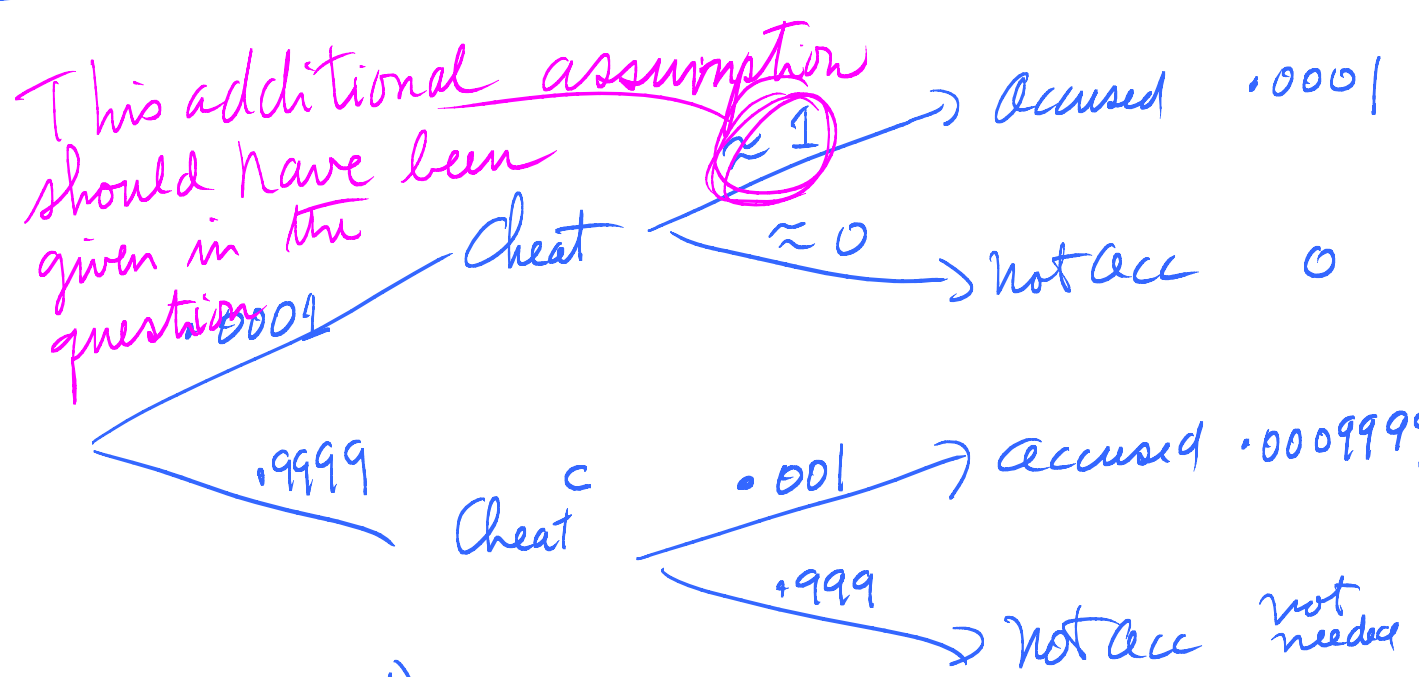 This additional assumption
should have been
given in the
question
≈ 1
Accused .0001
Cheat
≈ 0
Not Acc 0
.0001
.9999
Cheat c
.001
Accused .0009999
.999
Not Acc not needed